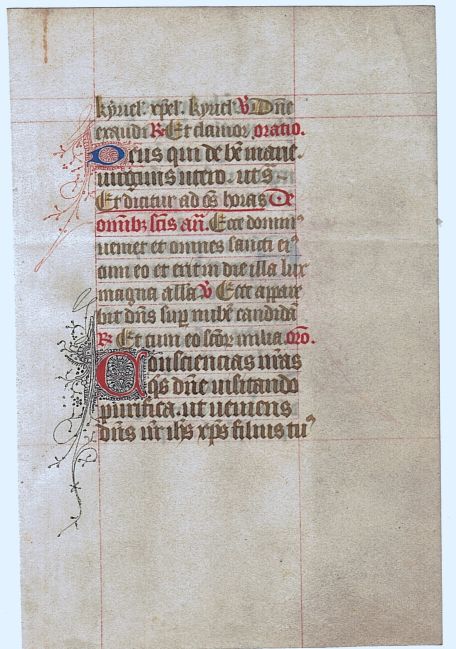 kyriel. xpel. kyriel. V Dne
exaudi R Et clamor. oratio.
Deus qui de be marie
uirginis utero. ut s
Et dicitur ad os horas De
omib; scis an. Ecce domin
ueniet et omnes sancti ei
cum eo et erit in die illa lux
magna alla V Ecce appare
bit dns sup nube candida
R Et cum eo scor milia. oro.
Consciencias nras
qs dne uisitando
purifica. ut ueniens
dns nr ihs xps filius tu